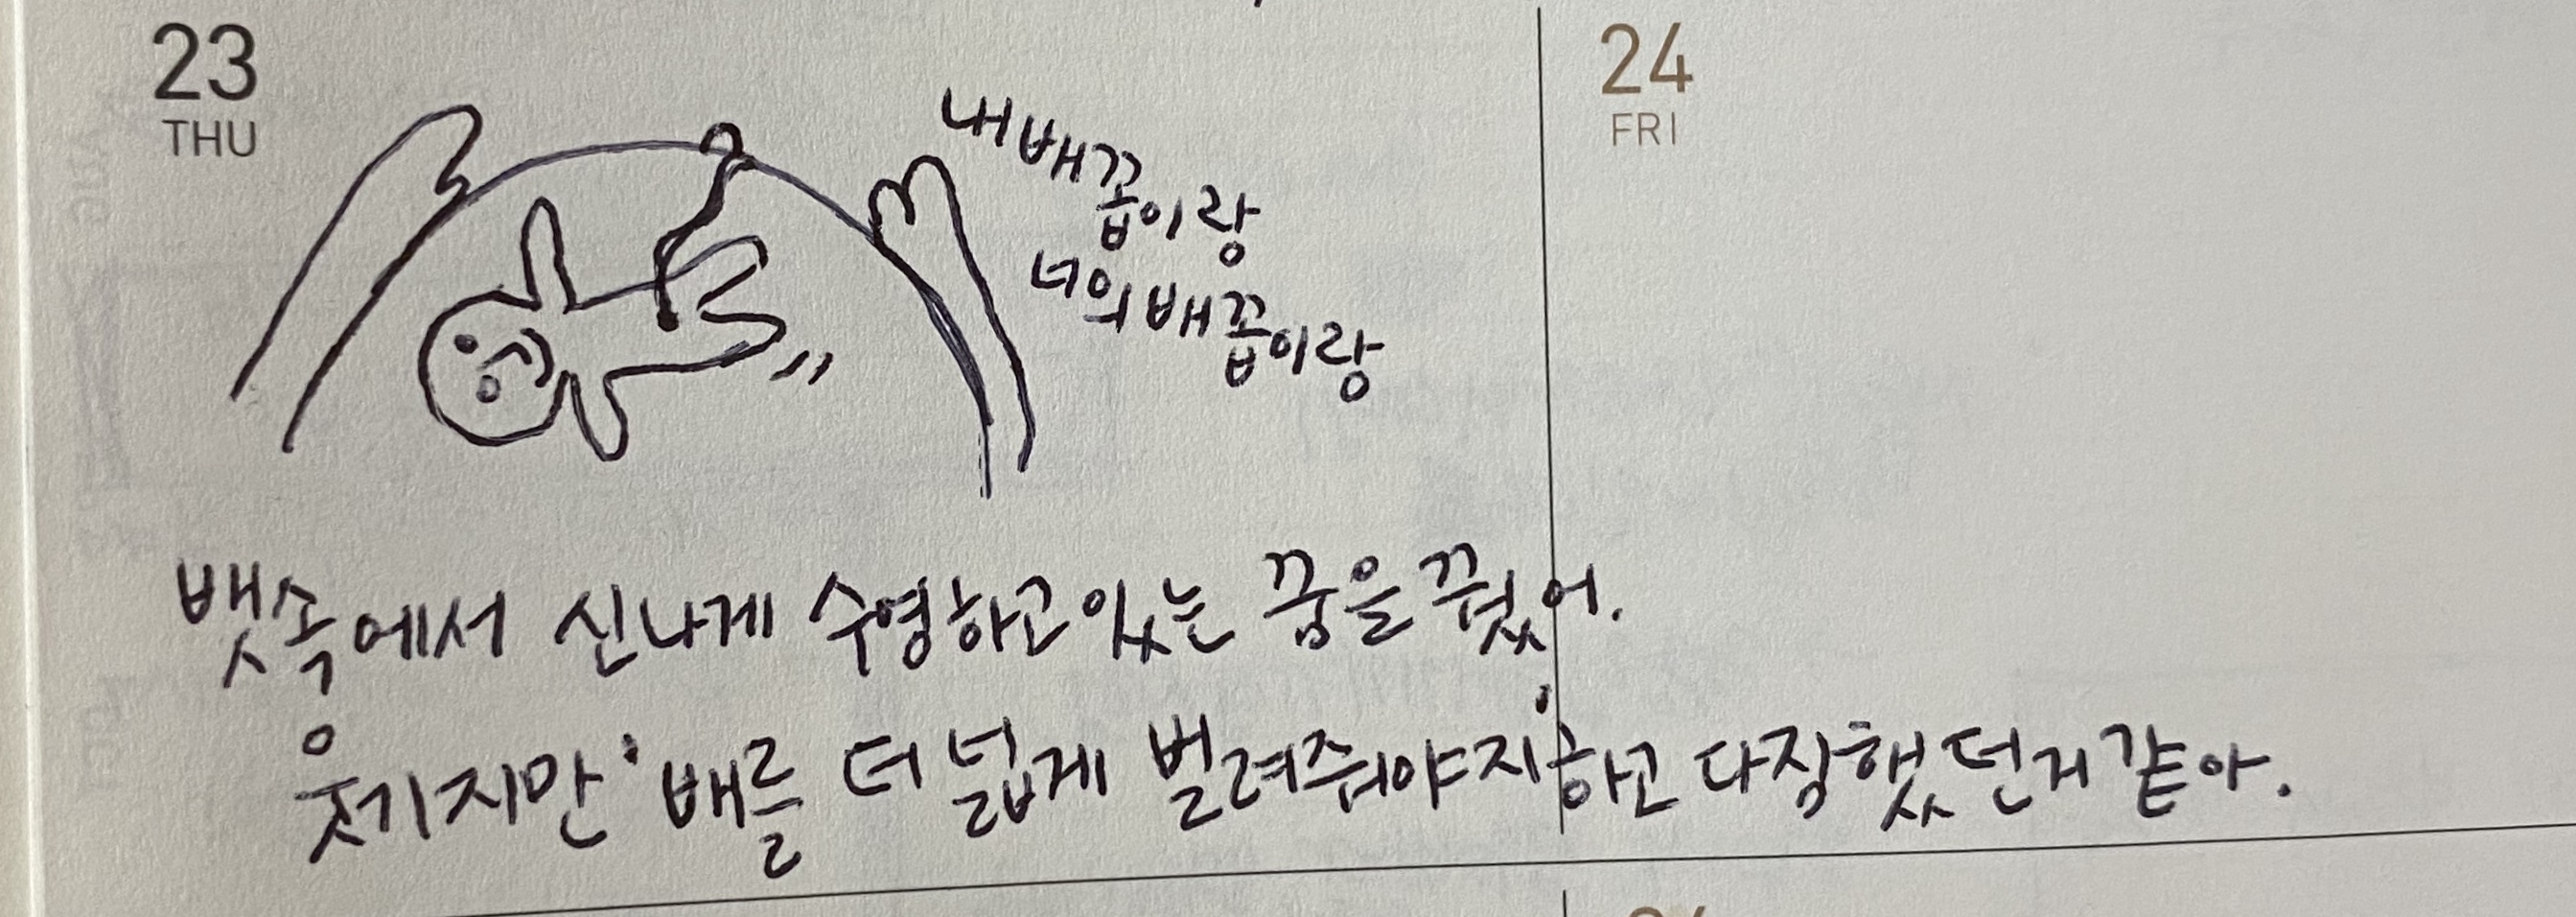 23
THU
24
FRI
내배꼽이랑
너의배꼽이랑
뱃속에서 신나게 수영하고있는 꿈을 꿨어.
웃기지만 '배를 더 넓게 벌려줘야지'하고 다짐했던거 같아.